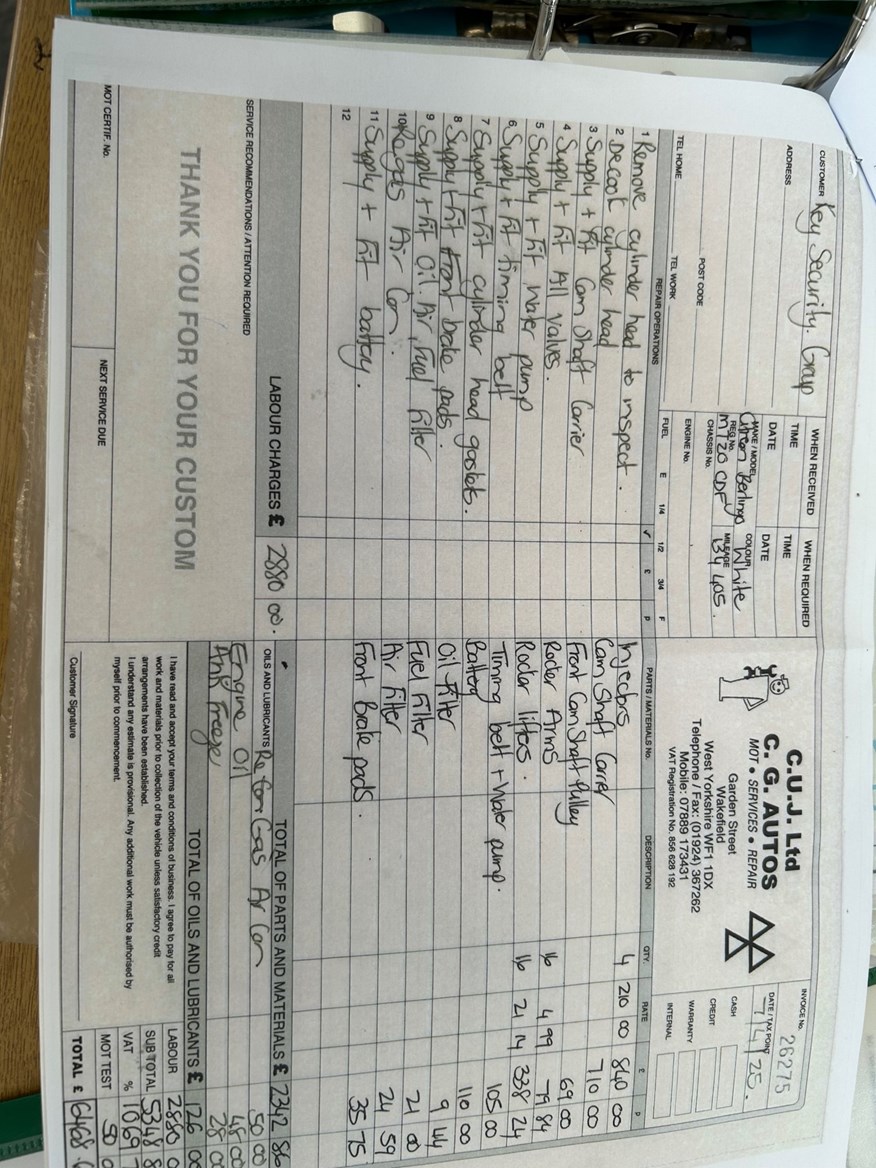 CUSTOMER Key Security. Group
ADDRESS
POST CODE
TEL HOME TEL WORK
WHEN RECEIVED WHEN REQUIRED
TIME TIME
DATE DATE
MAKE / MODEL Citroen Berlingo COLOUR White
REG No. M720 CDF MILEAGE 134 405.
CHASSIS No.
ENGINE No.
FUEL E 1/4 1/2 3/4 F
C.U.J. Ltd
C. G. AUTOS
MOT • SERVICES • REPAIR
Garden Street
Wakefield
West Yorkshire WF1 1DX
Telephone / Fax: (01924) 367262
Mobile: 07889 173431
VAT Registration No. 856 628 192
INVOICE No. 26275
DATE / TAX POINT 7/4/25.
CASH
CREDIT
WARRANTY
INTERNAL
REPAIR OPERATIONS ✓ £ P
1 Remove cylinder head to inspect.
2 Decoat cylinder head
3 Supply + Fit Cam Shaft Carrier
4 Supply + Fit All Valves.
5 Supply + Fit Water pump
6 Supply + Fit timing belt
7 Supply + Fit cylinder head gaskets.
8 Supply + Fit front brake pads.
9 Supply + Fit Oil, Air, Fuel Filter
10 Regas Air Con.
11 Supply + Fit battery.
12
LABOUR CHARGES £ 2880 00.
PARTS / MATERIALS No. DESCRIPTION QTY. RATE £ P
Injectors 4 210 00 840 00
Cam Shaft Carrier 710 00
Front Cam Shaft Pulley 69 00
Rocker Arms 16 4 99 79 84
Rocker lifters. 16 21 14 338 24
Timing belt + Water pump. 105 00
Battery 110 00
Oil Filter 9 44
Fuel Filter 21 00
Air Filter 24 59
Front Brake pads. 35 75
TOTAL OF PARTS AND MATERIALS £ 2342 86
OILS AND LUBRICANTS Gas Air Con 50 00
Engine Oil 48 00
Anti Freeze 28 00
TOTAL OF OILS AND LUBRICANTS £ 126 00
SERVICE RECOMMENDATIONS / ATTENTION REQUIRED
THANK YOU FOR YOUR CUSTOM
MOT CERTIF. No.
NEXT SERVICE DUE
I have read and accept your terms and conditions of business. I agree to pay for all
work and materials prior to collection of the vehicle unless satisfactory credit
arrangements have been established.
I understand any estimate is provisional. Any additional work must be authorised by
myself prior to commencement.
Customer Signature
LABOUR 2880 0
SUB TOTAL 5348 8
VAT % 1069 7
MOT TEST 50 0
TOTAL £ 6468.